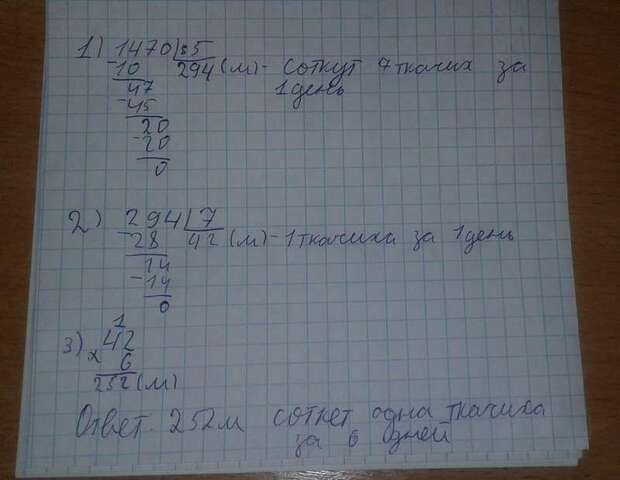 1) 1470 | 5
-10 294 (м) - соткут 7 ткачих за
47 1 день
-45
20
-20
0
2) 294 | 7
-28 42 (м) - 1 ткачиха за 1 день
14
-14
0
1
3) 42
× 6
252 (м)
Ответ. 252 м соткет одна ткачиха
за 6 дней